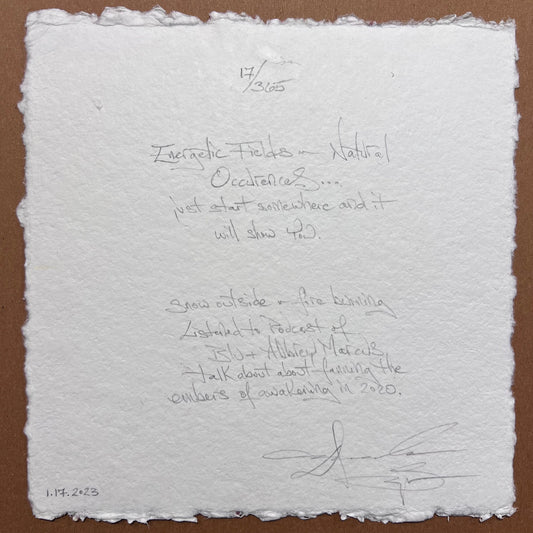 17/365
Energetic Fields ~ Natural
Occurences...
just start somewhere and it
will show you.
snow outside ~ fire burning
Listened to Podcast of
Blu + Aubrey Marcus
talk about about fanning the
embers of awakening in 2020.
1.17.2023